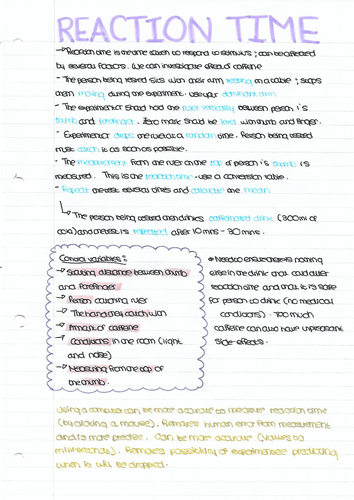 REACTION TIME
→ Reaction time is the time taken to respond to stimulus ; can be affected
by several factors. We can investigate effect of caffeine
- The person being tested sits with their arm resting on a table ; stops
them moving during the experiment. use your dominant arm.
- The experimenter should hold the ruler vertically between person 1's
thumb and forefinger. Zero mark should be level with thumb and finger.
- Experimenter drops the ruler at a random time. Person being tested
must catch it as soon as possible.
- The measurement from the ruler on the top of person 1's thumb is
measured. This is the reaction time - use a conversion table.
- Repeat the test several times and calculate the mean.
↳ The person being tested then drinks caffeinated drink (300ml of
cola) and the test is repeated after 10 mins - 30 mins.
Control variables :
→ Starting distance between thumb
and forefinger
→ Person catching ruler
→ The hand they catch with
→ Amount of caffeine
→ Conditions in the room (light
and noise)
→ Measuring from the top of
the thumb.
* Need to ensure there is nothing
else in the drink that could alter
reaction time and that it is safe
for person to drink (no medical
conditions). Too much
caffeine can also have unpleasant
side-effects.
Using a computer can be more accurate to measure reaction time
(by clicking a mouse). Removes human error from measurement
and is more precise. Can be more accurate (values to
milliseconds). Removes possibility of experimentee predicting
when it will be dropped.